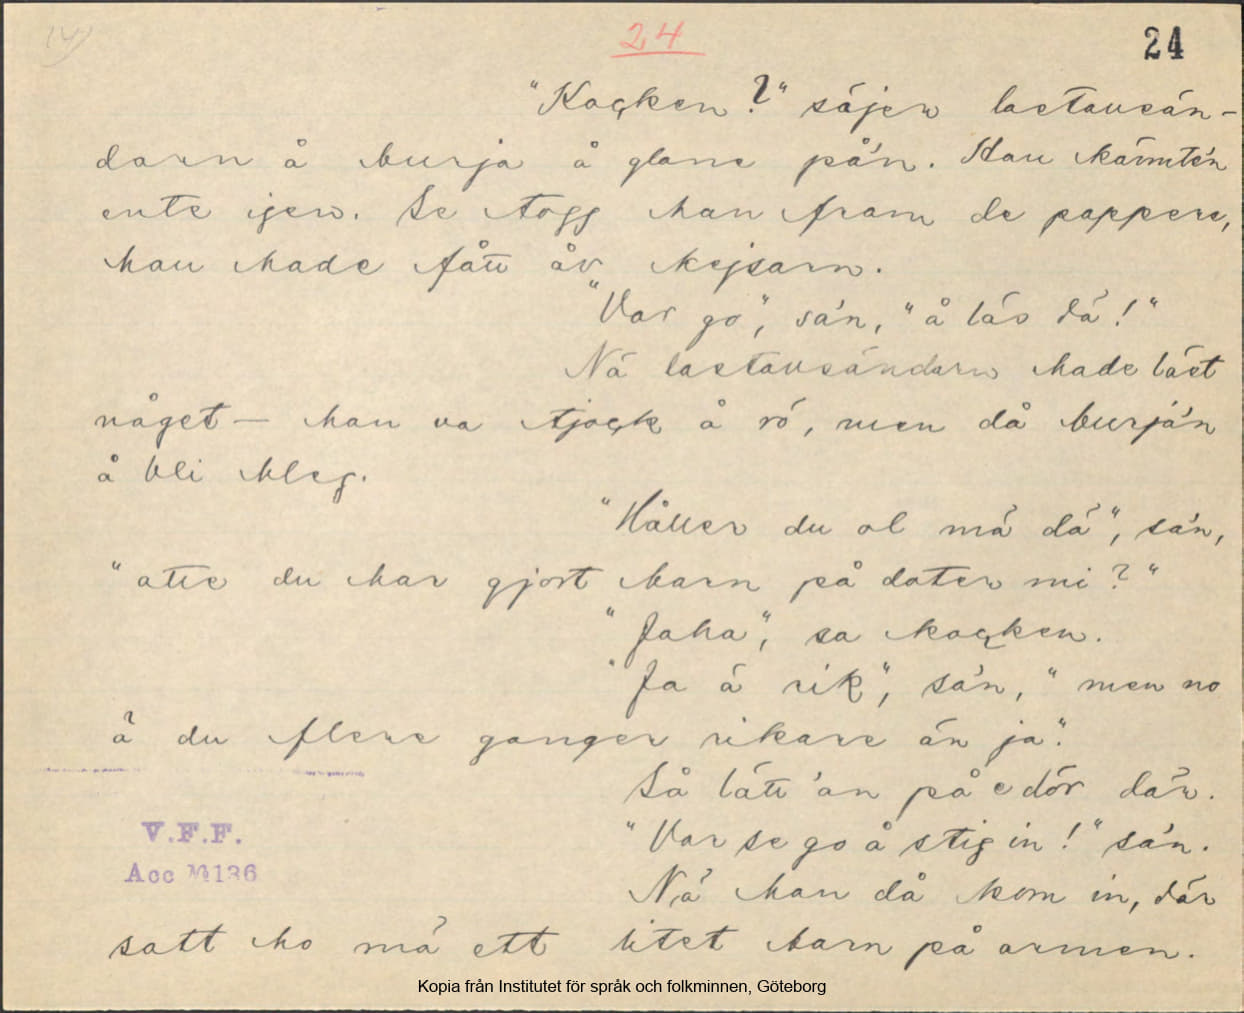 14)
24
24
"Koçken?" säjer lastausän-
darn å burja å glane på'n. Han kännte'n
ente igen. Se togg han fram de pappere,
han hade fått åv kejsarn.
"Var go", sa'n, "å läs dä!"
Nä lastausändarn hade läst
någet – han va tjoçk å rö, men då burja'n
å bli bleg.
"Håller du ol mä dä", sa'n,
"atte du har gjort barn på dater mi?"
"Jaha", sa koçken.
"Ja ä rik", sa'n, "men no
ä du flere ganger rikare än ja".
Så lätt'an på e dör där.
"Var se go å stig in!" sa'n.
Nä han då kom in, där
satt ho mä ett litet barn på armen.
V.F.F.
Acc № 136
Kopia från Institutet för språk och folkminnen, Göteborg